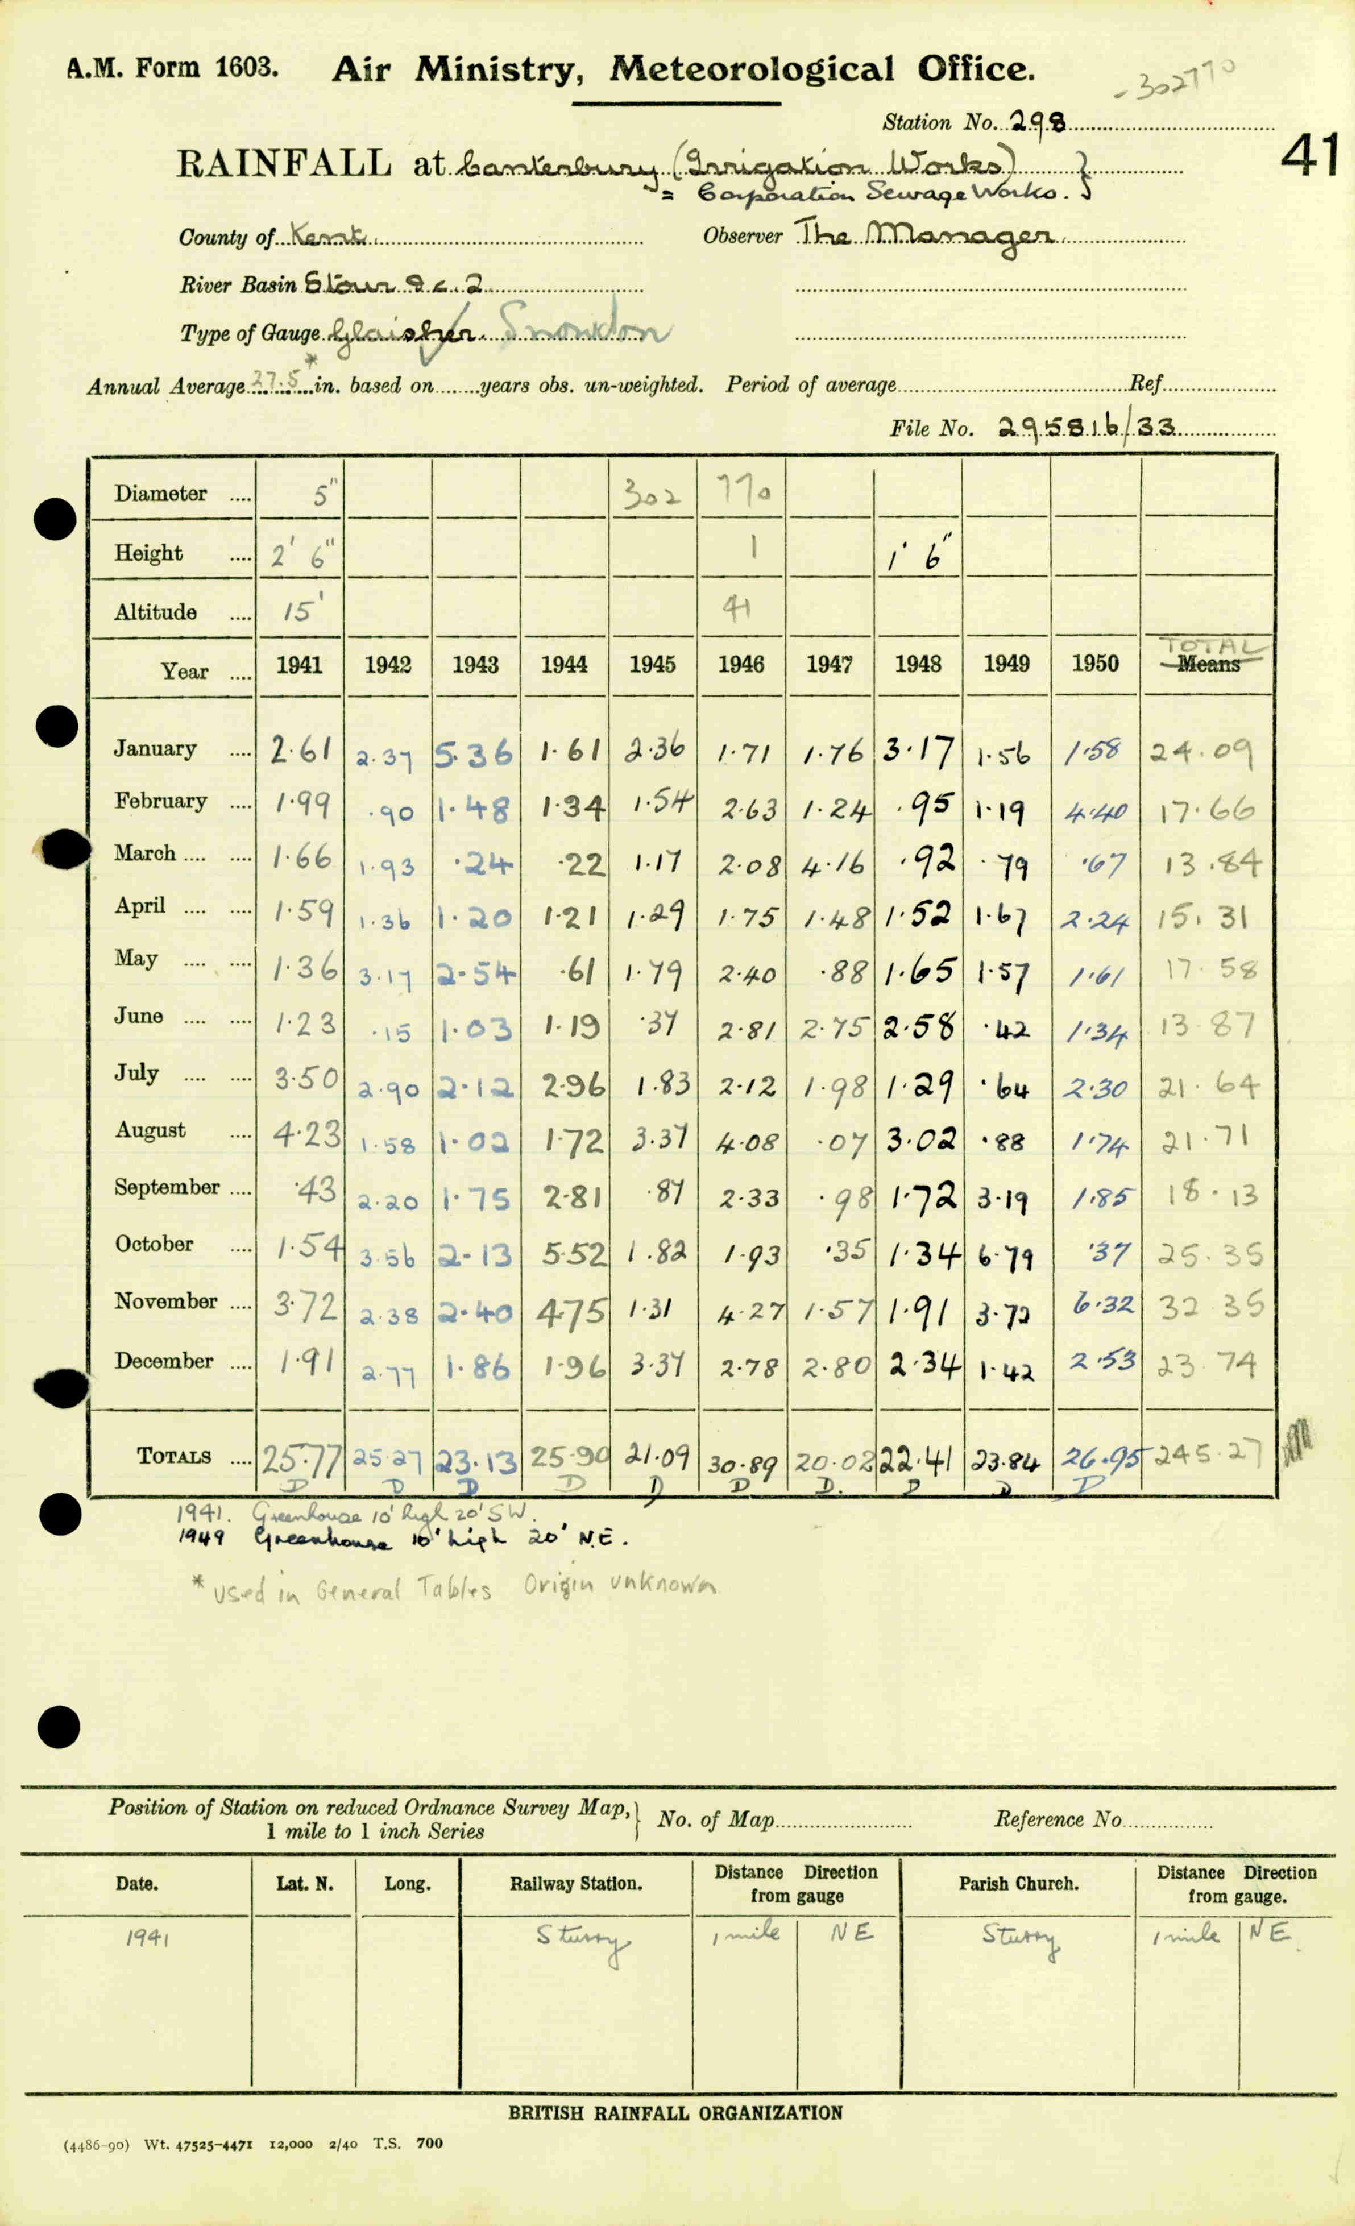 A.M. Form 1603. Air Ministry, Meteorological Office.
-302770
Station No. 298
41
RAINFALL at Canterbury (Irrigation Works) }
= Corporation Sewage Works. }
County of Kent. Observer The Manager.
River Basin Stour &c. 2
Type of Gauge Glaisher. ✓ Snowdon
Annual Average 27.5* in. based on years obs. un-weighted. Period of average Ref.
File No. 295816/33
Diameter 5" 302 770
Height 2' 6" 1 1' 6"
Altitude 15' 41
TOTAL
Year 1941 1942 1943 1944 1945 1946 1947 1948 1949 1950 Means
January 2.61 2.37 5.36 1.61 2.36 1.71 1.76 3.17 1.56 1.58 24.09
February 1.99 .90 1.48 1.34 1.54 2.63 1.24 .95 1.19 4.40 17.66
March 1.66 1.93 .24 .22 1.17 2.08 4.16 .92 .79 .67 13.84
April 1.59 1.36 1.20 1.21 1.29 1.75 1.48 1.52 1.67 2.24 15.31
May 1.36 3.17 2.54 .61 1.79 2.40 .88 1.65 1.57 1.61 17.58
June 1.23 .15 1.03 1.19 .37 2.81 2.75 2.58 .42 1.34 13.87
July 3.50 2.90 2.12 2.96 1.83 2.12 1.98 1.29 .64 2.30 21.64
August 4.23 1.58 1.02 1.72 3.37 4.08 .07 3.02 .88 1.74 21.71
September .43 2.20 1.75 2.81 .87 2.33 .98 1.72 3.19 1.85 18.13
October 1.54 3.56 2.13 5.52 1.82 1.93 .35 1.34 6.79 .37 25.35
November 3.72 2.38 2.40 4.75 1.31 4.27 1.57 1.91 3.72 6.32 32.35
December 1.91 2.77 1.86 1.96 3.37 2.78 2.80 2.34 1.42 2.53 23.74
TOTALS 25.77 25.27 23.13 25.90 21.09 30.89 20.02 22.41 23.84 26.95 245.27
D D D D D D D. D D D
1941. Greenhouse 10' high 20' SW.
1949 Greenhouse 10' high 20' N.E.
* used in General Tables Origin unknown
Position of Station on reduced Ordnance Survey Map, } No. of Map Reference No.
1 mile to 1 inch Series
Date. Lat. N. Long. Railway Station. Distance Direction from gauge Parish Church. Distance Direction from gauge.
1941 Sturry 1 mile NE Sturry 1 mile NE.
BRITISH RAINFALL ORGANIZATION
(4486-90) Wt. 47525-4471 12,000 2/40 T.S. 700